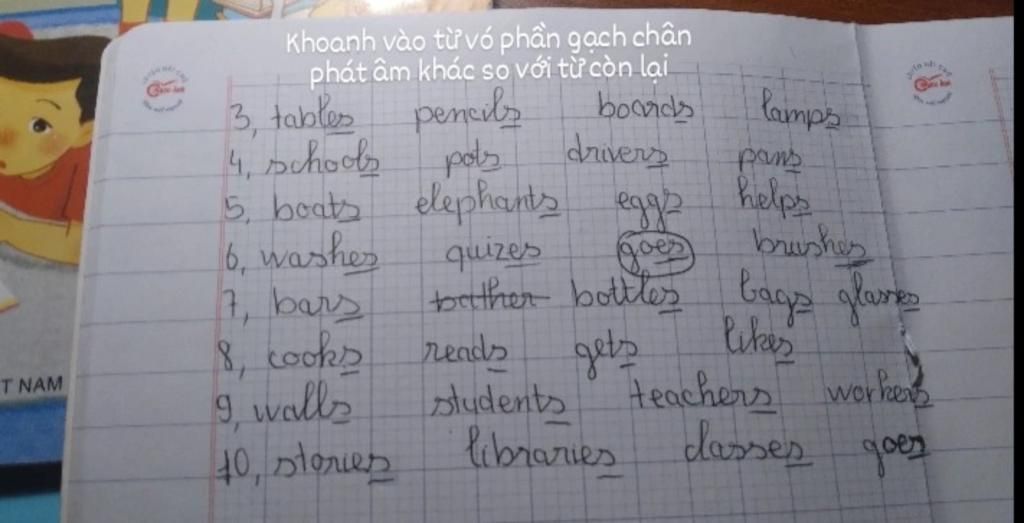 Khoanh vào từ vó phần gạch chân
phát âm khác so với từ còn lại
3, tables pencils boards lamps
4, schools pots drivers pans
5, boats elephants eggs helps
6, washes quizes goes brushes
7, bars bottles bags glasses
8, cooks reads gets likes
9, walls students teachers workers
10, stories libraries classes goes
T NAM